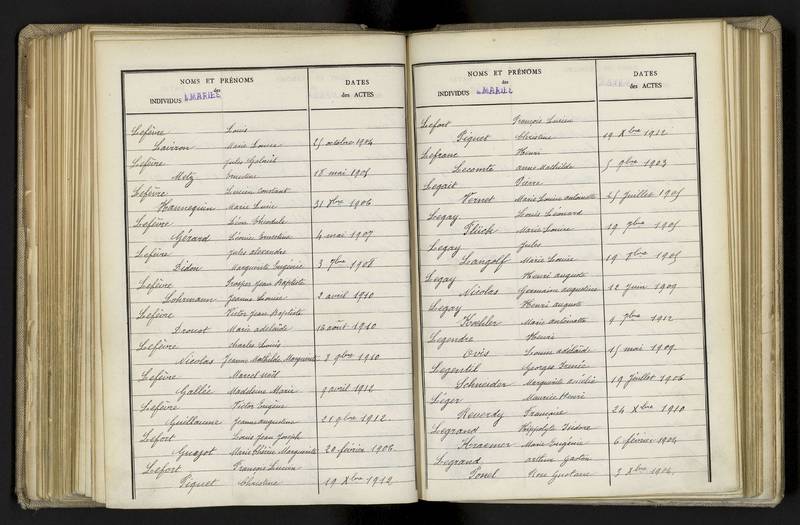 NOMS ET PRÉNOMS
des
INDIVIDUS MARIÉS
DATES
des ACTES
Lefèvre Louis
Lairron Marie Louise 25 octobre 1904
Lefèvre Jules
Metz Ernestine 18 mai 1905
Lefèvre Lucien Constant
Hannequin Marie Lucie 31 Xbre 1906
Lefèvre Léon Théodule
Gérard Léonie Ernestine 4 mai 1907
Lefèvre Jules Alexandre
Didon Marguerite Eugénie 3 7bre 1908
Lefèvre Prosper Jean Baptiste
Lohrmann Jeanne Louise 2 avril 1910
Lefèvre Victor Jean Baptiste
Drouot Marie Adelaïde 13 août 1910
Lefèvre Charles Louis
Nicolas Jeanne Mathilde Marguerite 3 9bre 1910
Lefèvre Marcel Noël
Gallée Madeleine Marie 9 avril 1912
Lefèvre Victor Eugène
Guillaume Jeanne Augustine 21 9bre 1912
Lefort Louis Jean Joseph
Guazot Marie Marguerite 20 février 1906
Lefort François Lucien
Piquet Christine 19 Xbre 1912
NOMS ET PRÉNOMS
des
INDIVIDUS MARIÉS
DATES
des ACTES
Lefort François Lucien
Piquet Christine 19 Xbre 1912
Lefranc Henri
Lecomte Anne Mathilde 5 9bre 1903
Legait Pierre
Vernet Marie Louise Antoinette 25 Juillet 1905
Legay Louis Léonard
Flück Marie Louise 19 7bre 1905
Legay Jules
Langolf Marie Louise 19 7bre 1905
Legay Henri Auguste
Nicolas Germaine Augustine 12 Juin 1909
Legay Henri Auguste
Koehler Marie Antoinette 9 7bre 1912
Legendre Henri
Ovis Louise Adélaïde 15 mai 1909
Legentil Georges Irénée
Schneider Marguerite Amélie 19 Juillet 1906
Léger Maurice Henri
Reverdy Françoise 24 Xbre 1910
Legrand Hippolyte Isidore
Kraemer Marie Eugénie 6 février 1904
Legrand Arthur Gaston
Ponel Rose Gustave 3 Xbre 1904